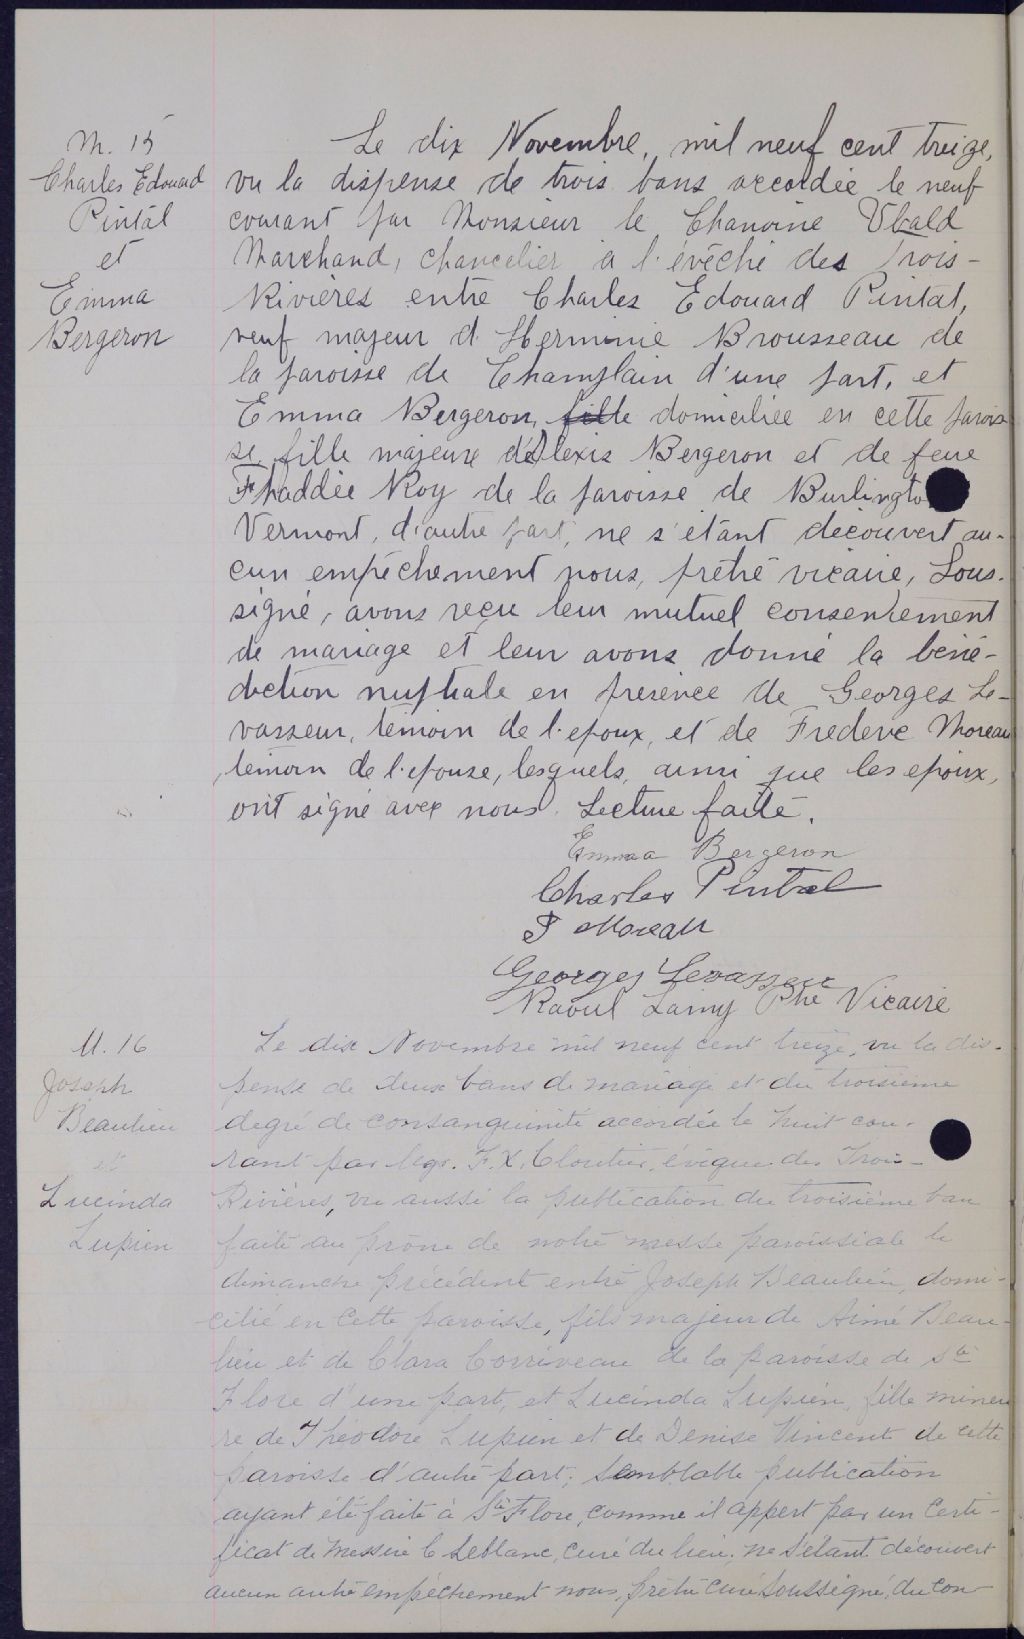 M. 15
Charles Edouard
Pintal
et
Emma
Bergeron
Le dix Novembre, mil neuf cent treize,
vu la dispense de trois bans accordée le neuf
courant par Monsieur le Chanoine Ubald
Marchand, chancelier à l'évêché des Trois-
Rivières entre Charles Edouard Pintal,
veuf majeur d'Herminie Brousseau de
la paroisse de Champlain d'une part, et
Emma Bergeron, fille domiciliée en cette parois
se, fille majeure d'Alexis Bergeron et de feue
Thaddée Roy de la paroisse de Burlingto
Vermont, d'autre part, ne s'étant découvert au-
cun empêchement nous, prêtre vicaire, Sous-
signé, avons reçu leur mutuel consentement
de mariage et leur avons donné la béné-
diction nuptiale en présence de Georges Le-
vasseur, témoin de l'époux, et de Frederic Moreau
témoin de l'épouse, lesquels, ainsi que les époux,
ont signé avec nous. Lecture faite.
Emma Bergeron
Charles Pintal
F Moreau
Georges Levasseur
Raoul Lamy Ptre Vicaire
M. 16
Joseph
Beaulieu
et
Lucinda
Lupien
Le dix Novembre mil neuf cent treize, vu la dis-
pense de deux bans de mariage et du troisième
degré de consanguinité accordée le huit cou-
rant par Mgr. F. X. Cloutier, évêque des Trois-
Rivières, vu aussi la publication du troisième ban
faite au prône de notre messe paroissiale le
dimanche précédent entre Joseph Beaulieu, domi-
cilié en cette paroisse, fils majeur de Aimé Beau-
lieu et de Clara Corriveau de la paroisse de Ste
Flore d'une part, et Lucinda Lupien, fille mineu
re de Théodore Lupien et de Denise Vincent de cette
paroisse d'autre part; semblable publication
ayant été faite à Ste Flore, comme il appert par un certi-
ficat de Messire C Leblanc, curé du lieu; ne s'étant découvert
aucun autre empêchement nous, prêtre curé soussigné, du con-